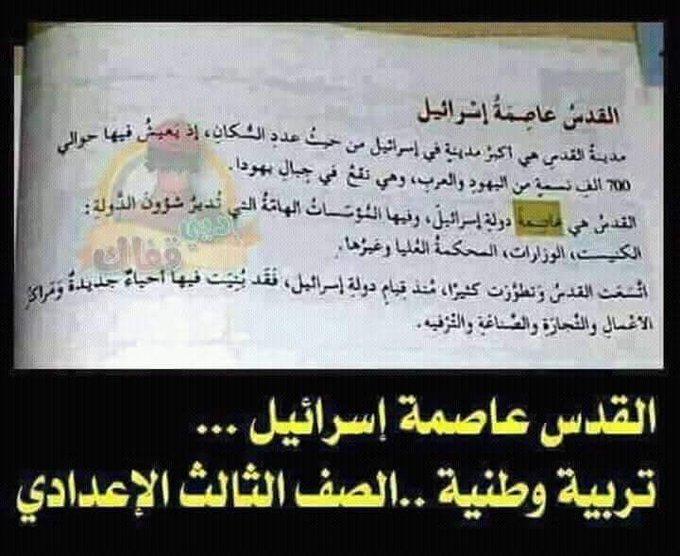 القدسُ عاصِمَةُ إسْرائيل
مدينةُ القدسِ هي اكبرُ مدينةٍ في إسرائيل من حيثُ عددِ السُكانِ، إذ يَعيشُ فيها حوالي
700 ألفِ نسمةٍ من اليهودِ والعربِ، وهي تقعُ في جبالِ يهودا.
القدسُ هي عاصمة دولةِ إسرائيلَ، وفيها المُؤسّساتُ الهامّةُ التي تُديرُ شؤونَ الدَّولةِ :
الكنيست، الوزارات، المحكمةُ العُليا وغيرُها.
اتّسعَت القدسُ وَتطوّرَت كثيرًا، مُنذ قيامِ دولةِ إسرائيل، فَقَد بُنِيَت فيها أحياءٌ جديدةٌ وَمراكزُ
الاعْمالِ والتّجارَةِ والصّناعَةِ والتّرْفيه.
ديبي قفاك
القدس عاصمة إسرائيل ...
تربية وطنية ..الصف الثالث الإعدادي